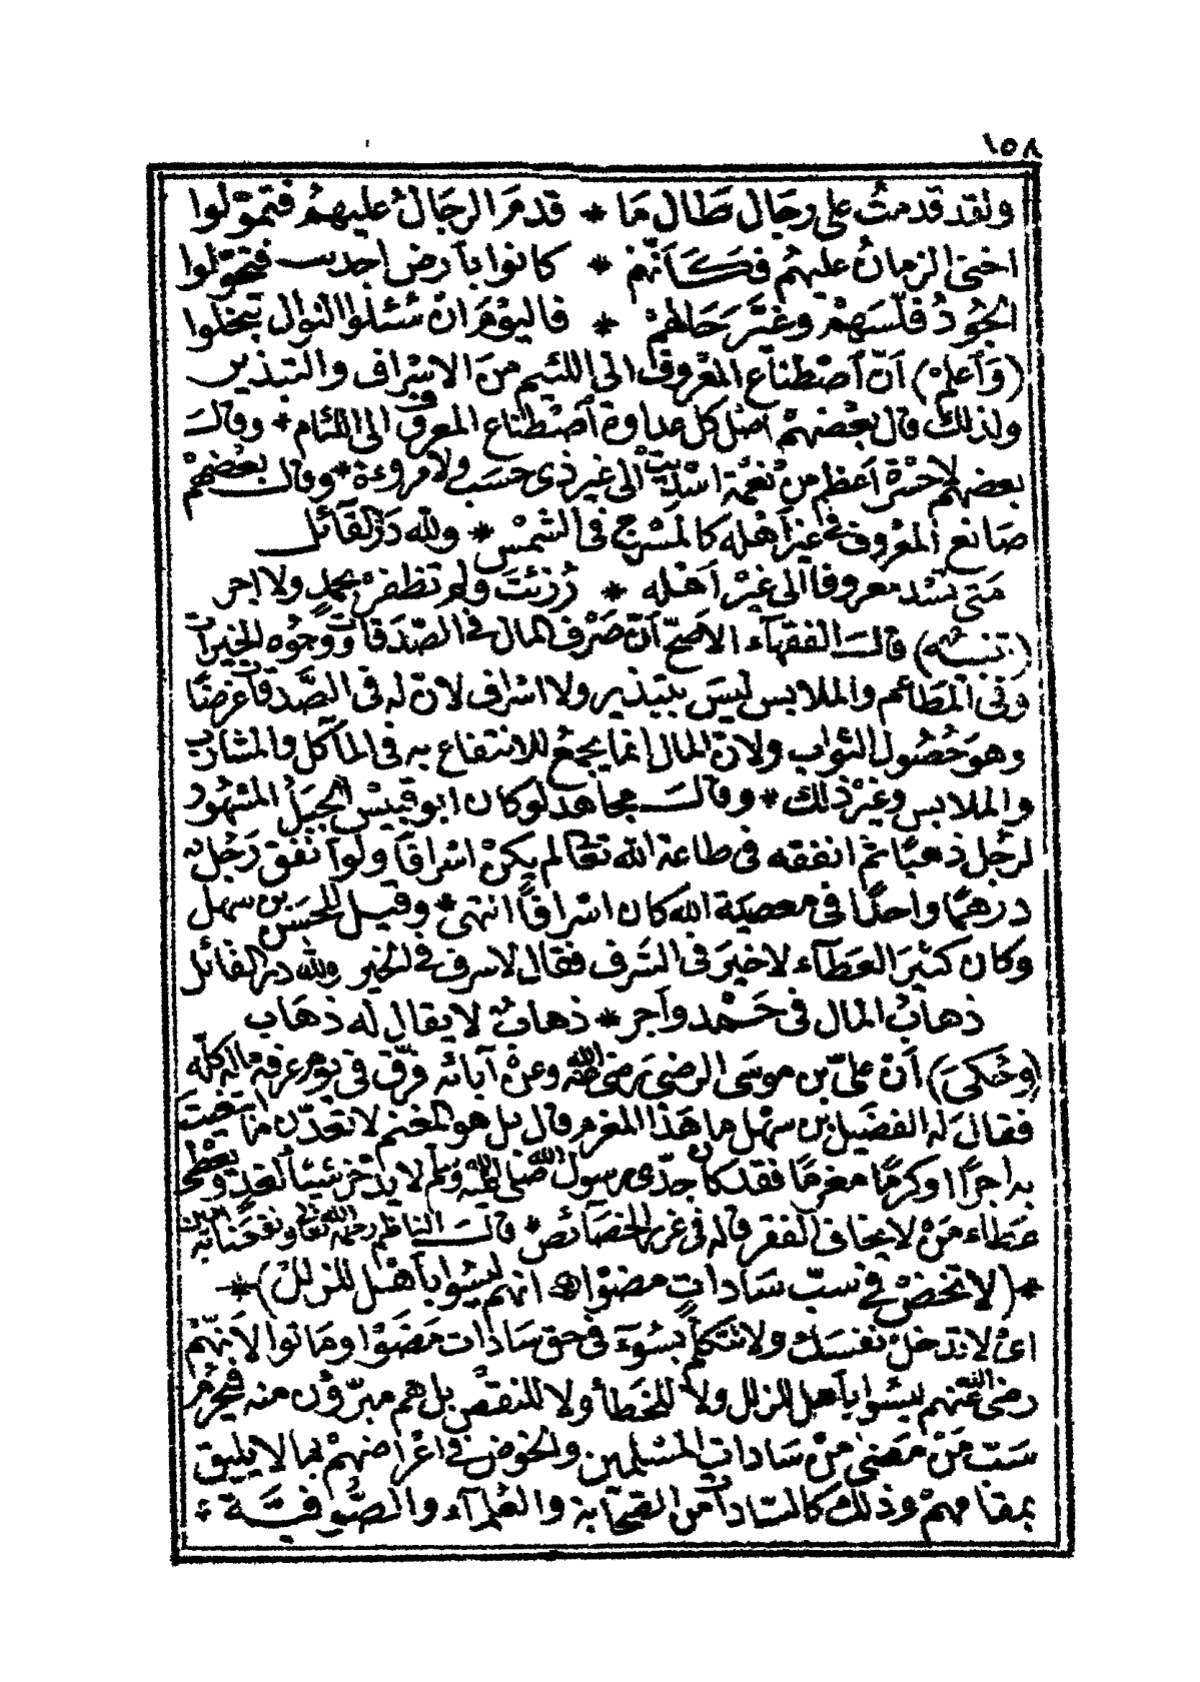 ١٥٨
ولقد قدمت على رجال طال ما * قدم الرجال عليهم فتمولوا
اخنى الزمان عليهم فكأنهم * كانوا بأرض اجدبت فتحولوا
الجود فلسهم وغير حالهم * فاليوم ان سئلوا النوال تبخلوا
(وأعلم) أن أصطناع المعروف الى اللئيم من الاسراف والتبذير
ولذلك قال بعضهم اصل كل عداوة أصطناع المعروف الى اللئام * وقال
بعضهم لاحسرة أعظم من نعمة اسديت الى غير ذى حسب ولا مروءة * وقال بعضهم
صانع المعروف فى غير أهله كالمسرج فى الشمس * ولله در القائل
متى تسد معروفا الى غير أهله * رزئت ولم تظفر بحمد ولا اجر
(تنبيه) قال الفقهآء الأصح أن صرف المال فى الصدقات ووجوه الخيرات
وفى المطاعم والملابس ليس بتبذير ولا اسراف لان له فى الصدقة غرضا
وهو حصول الثواب ولان المال انما يجمع للانتفاع به فى المآكل والمشارب
والملابس وغير ذلك * وقال مجاهد لو كان ابو قبيس الجبل المشهور
لرجل ذهبا ثم انفقه فى طاعة الله تعالى لم يكن اسرافا ولو أنفق رجل
درهما واحدا فى معصية الله كان اسرافا انتهى * وقيل للحسن بن سهل
وكان كثير العطآء لا خير فى السرف فقال لا سرف فى الخير ولله در القائل
ذهاب المال فى حمد وأجر * ذهاب لا يقال له ذهاب
(وحكى) أن على بن موسى الرضى رضى الله عنه وعن آبائه فرق فى يوم عرفة ماله كله
فقال له الفضيل بن سهل ما هذا المغرم قال بل هو المغنم لا تعدن ما ابتغيت
به اجرا او كرما مغرما فقد كان جدى رسول الله صلى الله عليه وسلم لا يدخر شيئا لغد
عطاء من لا يخاف الفقر قاله فى غرر الخصائص * قال الناظم رحمه الله تعالى
*(لا تخض فى سب سادات مضوا * انهم ليسوا بأهل للزلل)*
اى لا تدخل نفسك ولا تتكلم بسوء فى حق سادات مضوا وماتوا لأنهم
رضى الله عنهم ليسوا بأهل للزلل ولا للخطأ ولا للنقص بل هم مبرؤن منه فيحرم
سب من مضى من سادات المسلمين والخوض فى اعراضهم بما لا يليق
بمقامهم وذلك كالسادات من الصحابة والعلمآء والصوفية